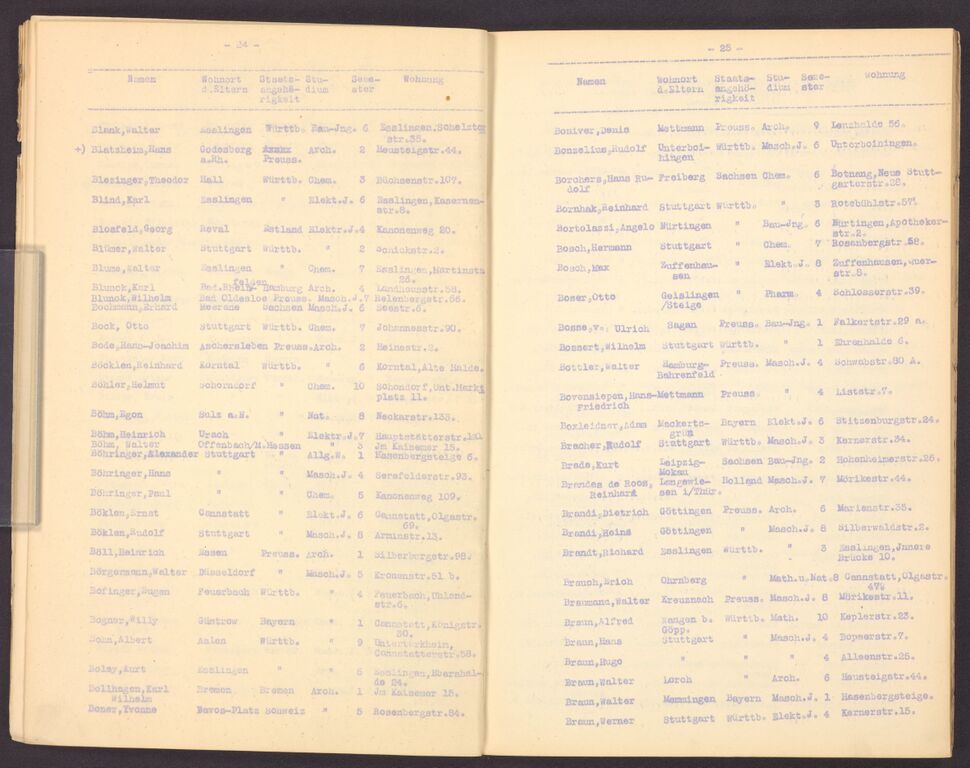 - 24 -
Namen Wohnort Staats- Stu- Seme- Wohnung
d.Eltern angehö- dium ster
rigkeit
Blank,Walter Esslingen Württb. Bau-Jng. 6 Esslingen,Schelztor
str.38.
+) Blatzheim,Hans Godesberg Arch. 2 Heusteigstr.44.
a.Rh. Preuss.
Blezinger,Theodor Hall Württb. Chem. 3 Büchsenstr.107.
Blind,Karl Esslingen " Elekt.J. 6 Esslingen,Kasernen-
str.8.
Blosfeld,Georg Reval Estland Elektr.J.4 Kanonenweg 20.
Blümer,Walter Stuttgart Württb. " 2 Schickstr.2.
Blume,Walter Esslingen " Chem. 7 Esslingen,Martinstr
26.
felden
Blunck,Karl Bad.Rhein- Hamburg Arch. 4 Landhausstr.58.
Blunck,Wilhelm Bad Oldesloe Preuss. Masch.J.7 Relenbergstr.66.
Bochmann,Erhard Meerane Sachsen Masch.J. 6 Seestr.6.
Bock, Otto Stuttgart Württb. Chem. 7 Johannesstr.90.
Bode,Hans-Joachim Aschersleben Preuss.Arch. 2 Heinestr.2.
Böcklen,Reinhard Korntal Württb. " 6 Korntal,Alte Halde.
Böhler,Helmut Schorndorf " Chem. 10 Schondorf,Unt.Markt
platz 11.
Böhm,Egon Sulz a.N. " Nat. 8 Neckarstr.133.
Böhm,Heinrich Urach " Elektr.J.7 Hauptstätterstr.
Böhm, Walter Offenbach/M.Hessen " 3 Jm Kaisemer 15.
Böhringer,Alexander Stuttgart Allg.W. 1 Hasenbergsteige 6.
Böhringer,Hans " " Masch.J. 4 Serefelderstr.93.
Böhringer,Paul " " Chem. 5 Kanonenweg 109.
Böklen,Ernst Cannstatt " Elekt.J. 6 Cannstatt,Olgastr.
69.
Böklen,Rudolf Stuttgart " Masch.J. 8 Arminstr.13.
Böll,Heinrich Essen Preuss. Arch. 1 Silberbergstr.98.
Börgermann,Walter Düsseldorf " Masch.J. 5 Kronenstr.51 b.
Bofinger,Eugen Feuerbach Württb. " 4 Feuerbach,Uhland-
str.6.
Bogner,Willy Güstrow Bayern " 1 Cannstatt,Königstr.
30.
Bohn,Albert Aalen Württb. " 9 Untertürkheim,
Cannstatterstr.58.
Boley,Kurt Esslingen " " 6 Esslingen,Ebershal-
de 24.
Bollhagen,Karl Bremen Bremen Arch. 1 Jm Kaisemer 15.
Wilhelm
Boner,Yvonne Davos-Platz Schweiz " 5 Rosenbergstr.84.
- 25 -
Namen Wohnort Staats- Stu- Seme- Wohnung
d.Eltern angehö- dium ster
rigkeit
Boniver,Denis Mettmann Preuss. Arch. 9 Lenzhalde 56.
Bonzelius,Rudolf Unterboi- Württb. Masch.J. 6 Unterboihingen.
hingen
Borchers,Hans Ru- Freiberg Sachsen Chem. 6 Botnang,Neue Stutt-
dolf garterstr.28.
Bornhak,Reinhard Stuttgart Württb. " 3 Rotebühlstr.57
Bortolazzi,Angelo Nürtingen " Bau-Jng. 6 Nürtingen,Apotheker-
str.2.
Bosch,Hermann Stuttgart " Chem. 7 Rosenbergstr.58.
Bosch,Max Zuffenhau- " Elekt.J. 8 Zuffenhausen,Quer-
sen str.8.
Boser,Otto Geislingen " Pharm. 4 Schlosserstr.39.
/Steige
Bosse,v. Ulrich Sagan Preuss. Bau-Jng. 1 Falkertstr.29 a.
Bossert,Wilhelm Stuttgart Württb. " 1 Ehrenhalde 6.
Bottler,Walter Hamburg- Preuss. Masch.J. 4 Schwabstr.80 A.
Bahrenfeld
Bovensiepen,Hans- Mettmann Preuss. " 4 Liststr.7.
Friedrich
Boxleidner,Adam Mackerts- Bayern Elekt.J. 6 Stitzenburgstr.24.
grün
Bracher,Rudolf Stuttgart Württb. Masch.J. 3 Kernerstr.34.
Brade,Kurt Leipzig- Sachsen Bau-Jng. 2 Hohenheimerstr.26.
Mokau
Brandes de Roos, Langewie- Holland Masch.J. 7 Mörikestr.44.
Reinhard sen i/Thür.
Brandi,Dietrich Göttingen Preuss. Arch. 6 Marienstr.33.
Brandi,Heinz Göttingen " Masch.J. 8 Silberwaldstr.2.
Brandt,Richard Esslingen Württb. " 3 Esslingen,Jnnere
Brücke 10.
Brauch,Erich Ohrnberg " Math.u.Nat.8 Cannstatt,Olgastr.
Braumand,Walter Kreuznach Preuss. Masch.J. 8 Mörikestr.11.
Braun,Alfred Wangen b. Württb. Math. 10 Keplerstr.23.
Göpp.
Braun,Hans Stuttgart " Masch.J. 4 Bopserstr.7.
Braun,Hugo " " " 4 Alleenstr.25.
Braun,Walter Lorch " Arch. 6 Heusteigstr.44.
Braun,Walter Memmingen Bayern Masch.J. 1 Hasenbergsteige.
Braun,Werner Stuttgart Württb. Elekt.J. 4 Kernerstr.15.